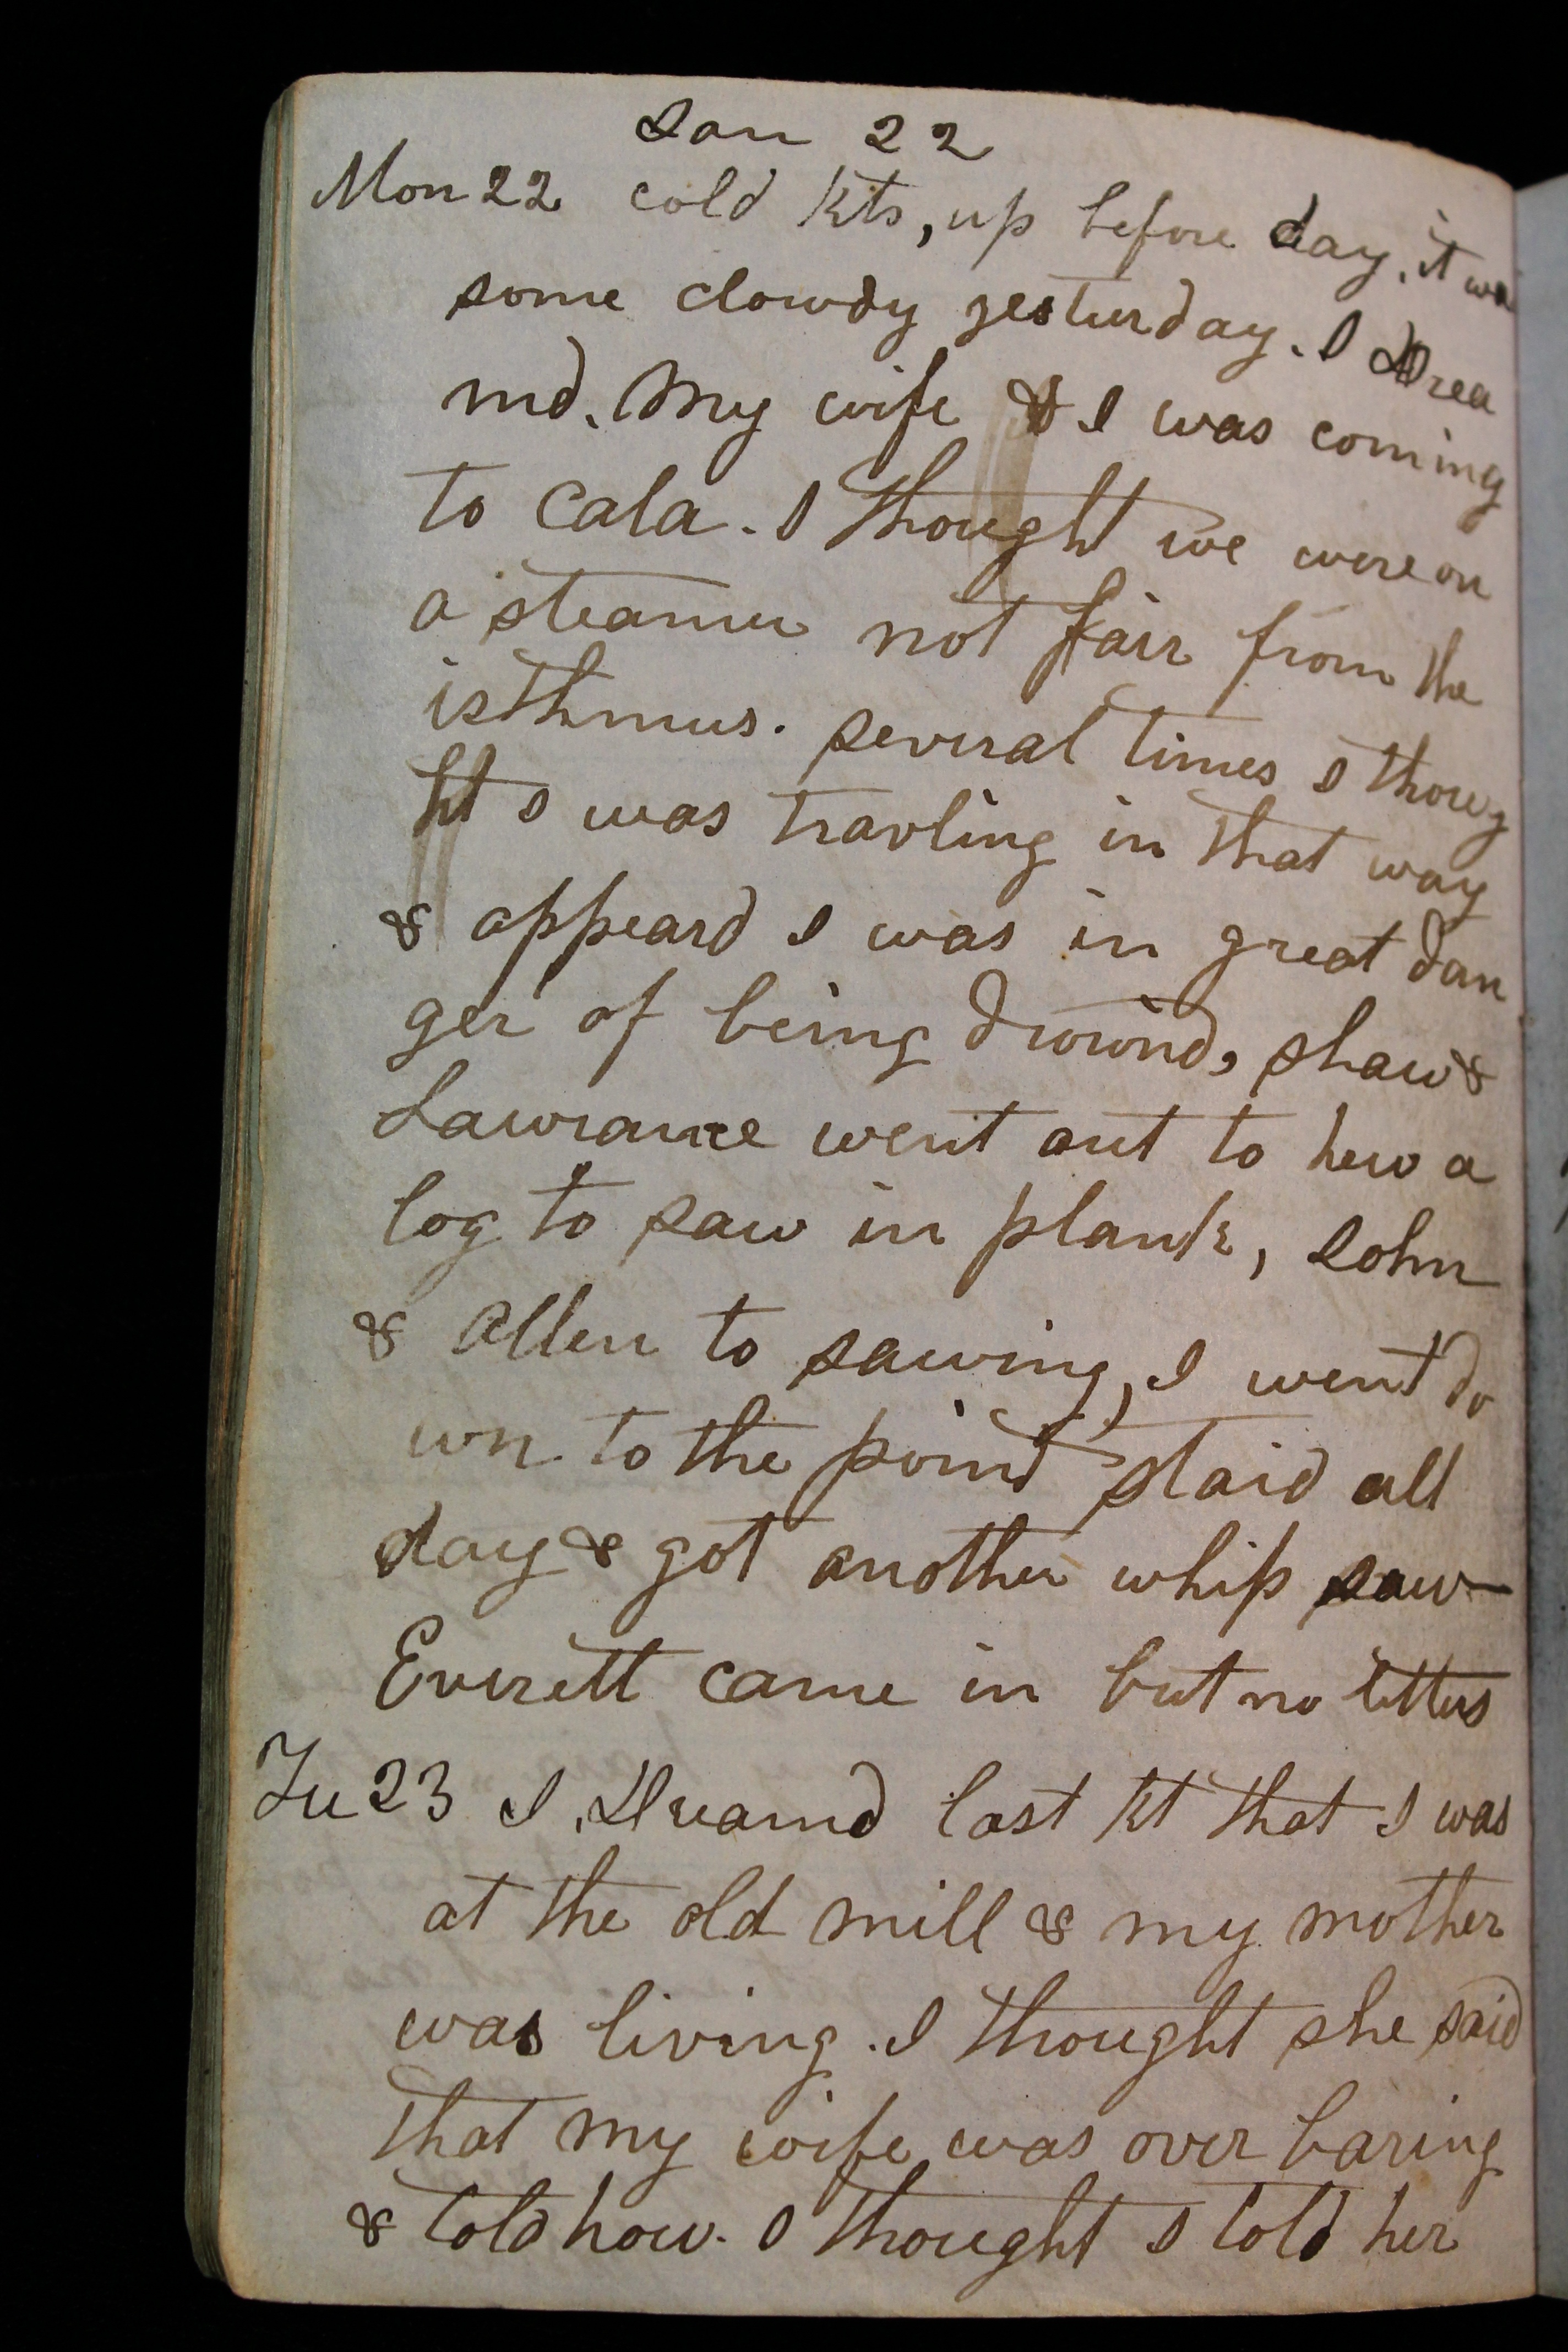 Jan 22
Mon 22 cold Kts, up before day. it was
some clowdy yesturday. I Drea
md. My wife & I was coming
to Cala. I thought we were on
a steamer not fair from the
isthmus. several times I thoug
ht I was travling in that way
& appeard I was in great dan
ger of being drownd, Shaw &
Lawrance went out to hew a
log to saw in plank, John
& Allen to sawing, I went do
wn to the point staid all
day & got another whip saw
Everett came in but no letters
Tu 23 I Dreamd last Kt that I was
at the old mill & my mother
was living. I thought she said
that my wife was over baring
& told how. I thought I told her